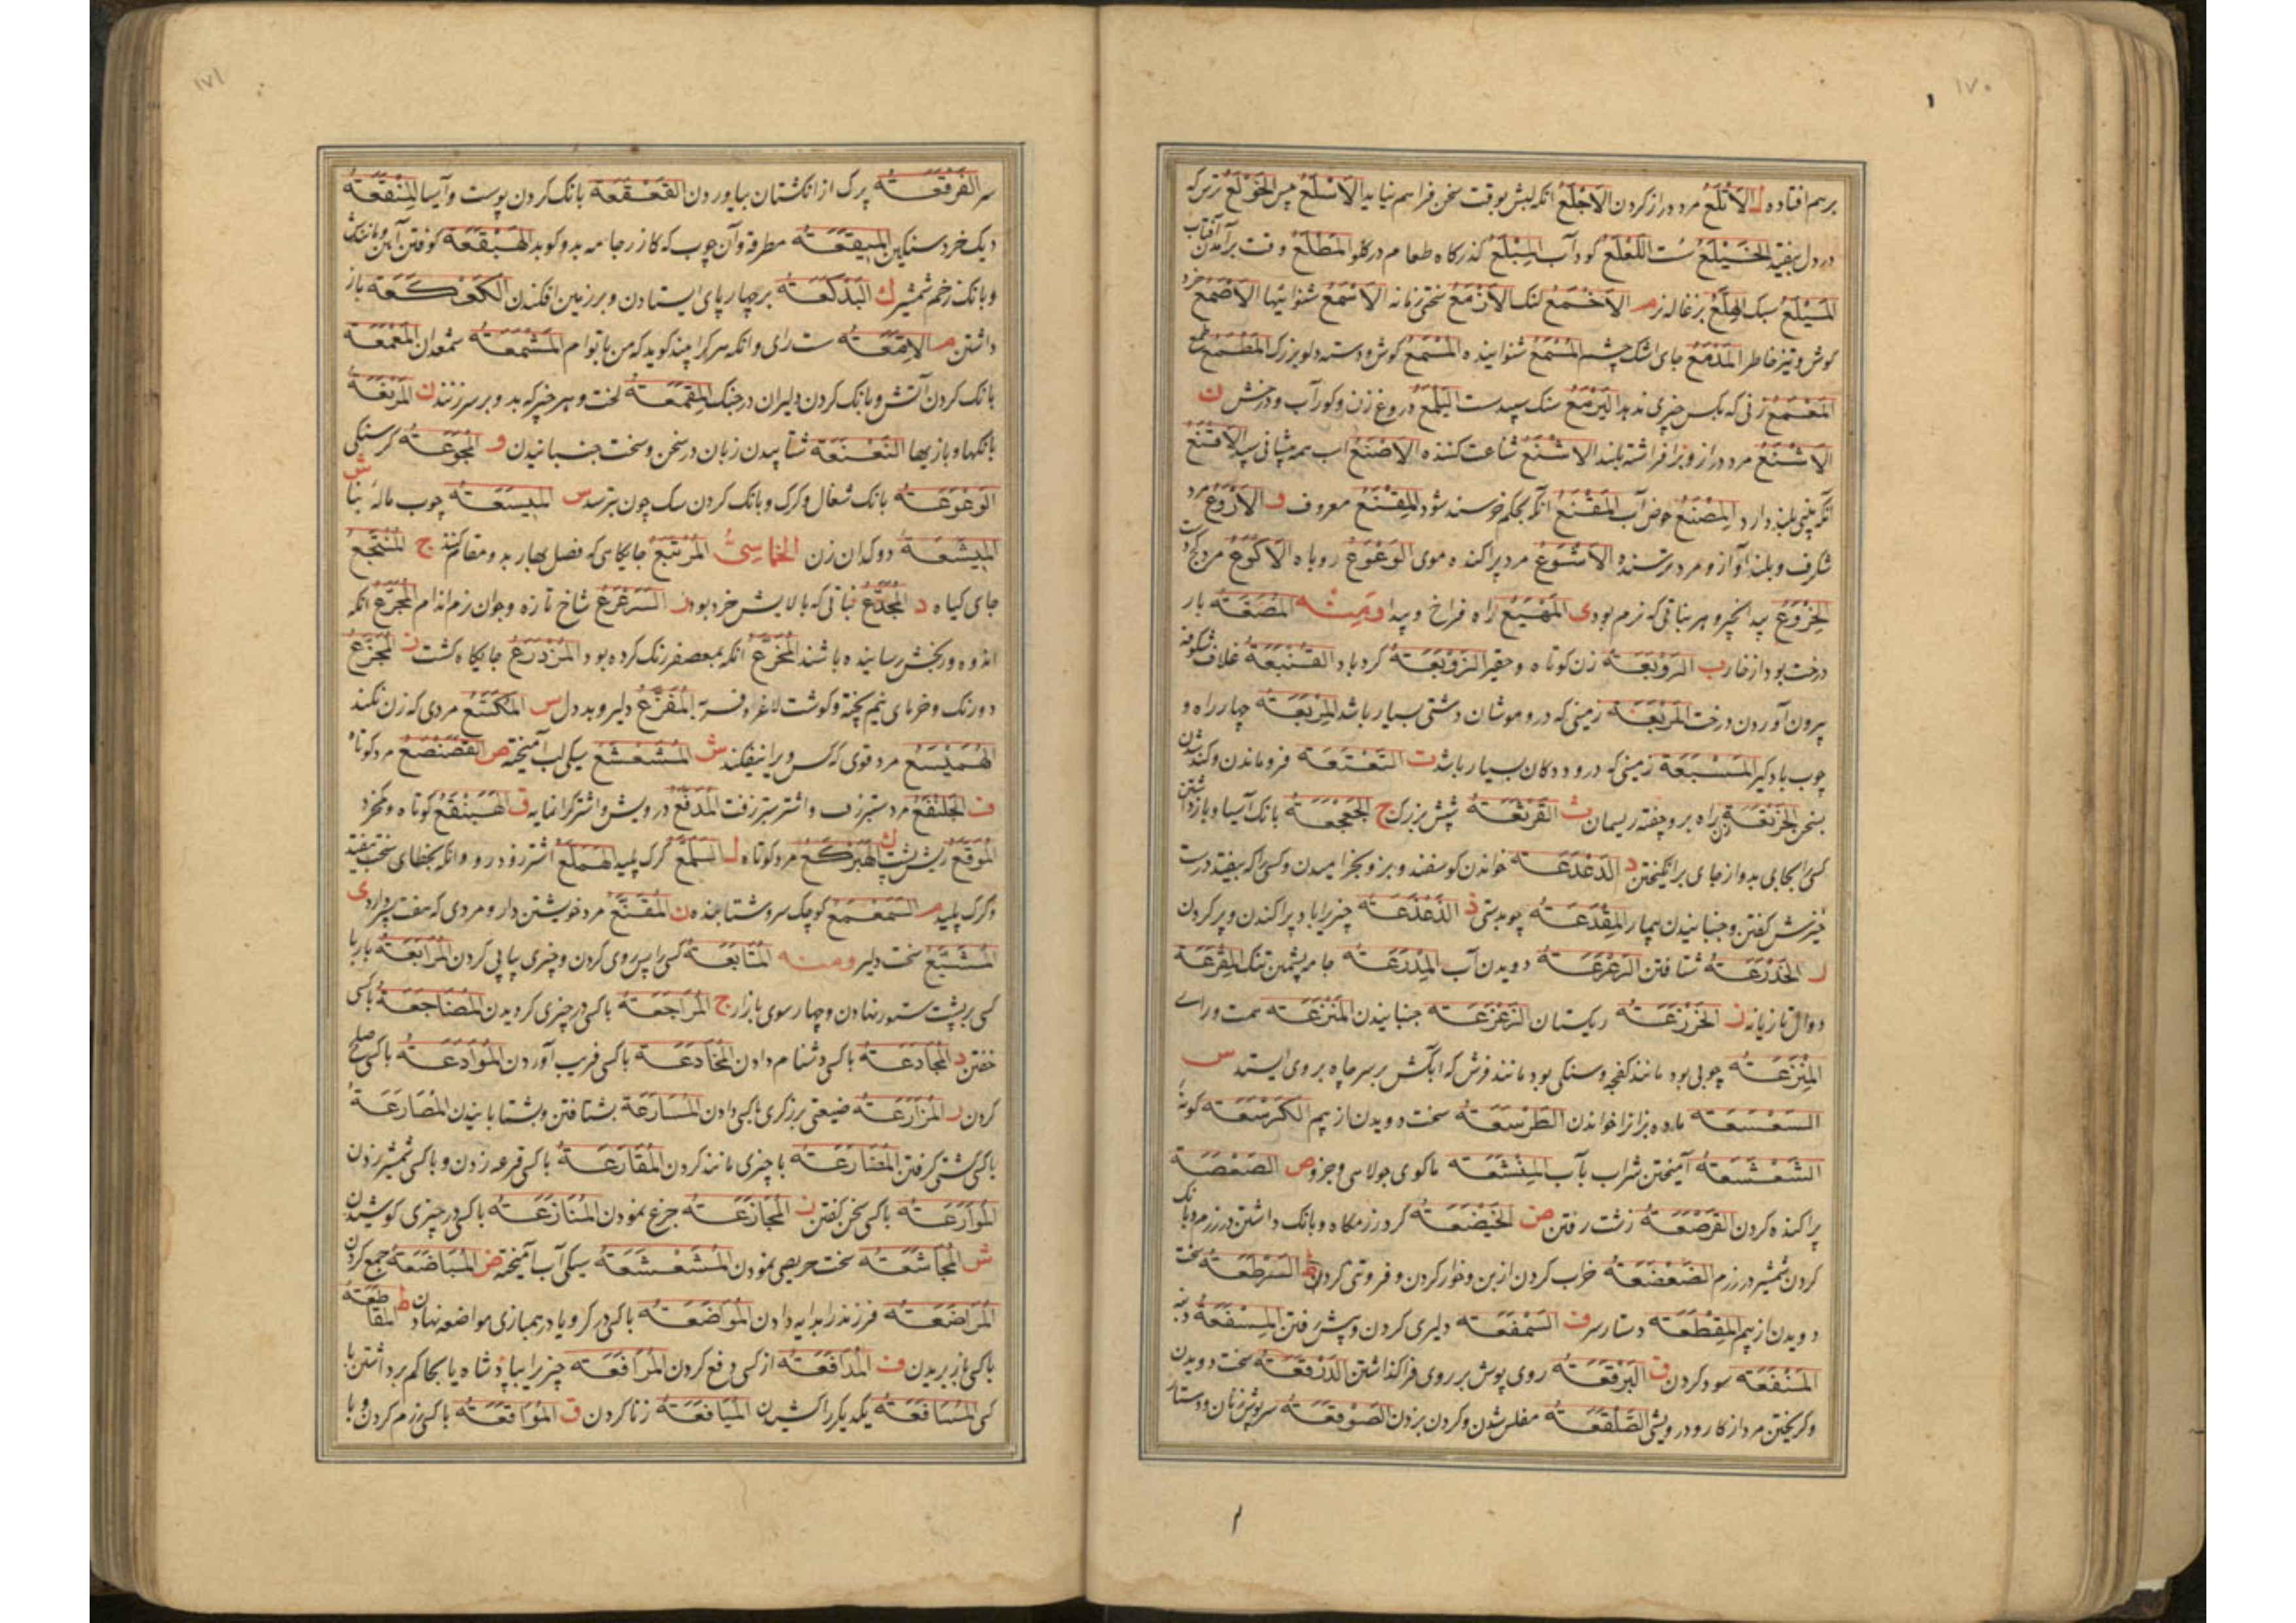 ۱۷۰
برهم افتاده ل الاتلع مرد دراز کردن الاجلع انکه لبش بوقت سخن فراهم نیاید الاسلع پیس الخولع ترس که
در دل بیفتد الخیلع سست اللعلع کوراب المبلع کذرکاه طعام در کلو المطلع وقت برآمدن آفتاب
المیلع سبک الهلع بزغاله نر م الاخمع لنک الازمع سختی زمانه الاسمع شنوائیها الاصمع خرد
کوش و تیز خاطر المدمع جای اشک چشم المسمع شنواینده المسمع کوش و دسته دلو بزرک المطمع طمع
المعمع زنی که بکس چیزی ندهد الیرمع سنک سپید سست الیلمع دروغ زن و کوراب و درخش ن
الاشنع مرد دراز و برافراشته بلند الاشنع شناعت کننده الاصنع الاقنع
انکه بینی بلند دارد المصنع حوض آب المقنع آنکه بحکم خرسند شود المقنع معروف و الاروع مرد
شکرف و بلند آواز و مرد ترسنده الاشوع مرد پراکنده موی الوعوع روباه الاکوع مرد کج دست
الخروع بید انجیر و هر نباتی که نرم بود ی المهیع راه فراخ و پیدا ومنه المصقعة بار
درخت بود از خار ب الروبعة زن کوتاه و حقیر الزوبعة کردباد القنبعة غلاف شکوفه
بیرون آوردن درخت المربعة زمینی که درو موشان دشتی بسیار باشد المربعة چهار راه و
چوب بادکیر المسبعة زمینی که درو ددکان بسیار باشد ت التعتعة فروماندن و کند شدن
بسخن الخرتعة براه بر و چفته ریسمان ث القرثعة شپش بزرک ج الجعجعة بانک آسیا و بازداشتن
کسی را بجایی بد و از جای برانکیختن د الدعدعة خواندن کوسفند و بز و بخرامیدن و کسی را که بیفتد درست
خیزش کفتن و جنبانیدن پیمانه المقدعة چوبدستی ذ الذعذعة چیزی را باد پراکندن و پر کردن
ر الخذرعة شتافتن الرعرعة دویدن آب المدرعة جامه پشمین تنک المقرعة
دوال تازیانه ز الخزرعة ریکستان الزعزعة جنبانیدن المنزعة همت و رای
المنزعة چوبی بود مانند کفچه و سنکی بود مانند فرش که آبکش بر سر چاه بر وی ایستد س
السعسعة ماده بزانرا خواندن الطرسعة سخت دویدن از بیم الکرسعة کونه
الشعشعة آمیختن شراب بآب المنشعة ماکوی جولاهی و جزو ص الصعصعة
پراکنده کردن القرصعة زشت رفتن ض الخیضعة کرد رزمکاه و بانک داشتن در رزم و بانک
کردن شمشیر در رزم الضعضعة خراب کردن از بن و خوار کردن و فروتنی کردن ط السرطعة سخت
دویدن از بیم المقطعة دستار سر ف السمفعة دلیری کردن و پیش رفتن المسفعة
المنفعة سود کردن ق البرقعة روی پوش بر روی فراکذاشتن الدرقعة سخت دویدن
و کریختن مرد از کار و درویشی الصلقعة مفلس شدن و کردن بزدن الصوقعة سرپوش زنان و دستار
۱۷۱
سر الفرقعة پرک از انکشتان بیاوردن القعقعة بانک کردن پوست و آسیا المنقعة
دیک خرد سنکین المیقعة مطرقه و آن چوب که کازر جامه بدو کوبد الهبقعة کوفتن آهن و مانندش
و بانک زخم شمشیر ک البذکعة بر چهار پای ایستادن و بر زمین افکندن الکعکعة باز
داشتن م الامعة سست رای و انکه هر کرا بیند کوید که من با توام المشمعة شمعدان المعمعة
بانک کردن آتش و بانک کردن دلیران در جنک المقمعة لخت و هر چیز که بدو بر سر زنند ن المرنعة
بانکها و بازیها النعنعة شتابیدن زبان در سخن و سخت جنبانیدن و المجوعة کرسنکی
الوعوعة بانک شغال و کرک و بانک کردن سک چون بترسد س المیسعة چوب مالهٔ بنا ش
المیشعة دوکدان زن الخماسی المرتبع جایکاهی که فصل بهار بدو مقام کنند ج المنتجع
جای کیاه د المجدع نباتی که بالایش خرد بود ر السرعرع شاخ تازه و جوان نرم اندام المجرع انکه
اندوه و رنجش رسانیده باشند المخرع انکه بمعصفر رنک کرده بود المزدرع جایکاه کشت ز المجزع
دو رنک و خرمای نیم پخته و کوشت لاغر و فربه المفزع دلیر و بددل س المکتسع مردی که زن نکند
الهمیسع مرد قوی که کس ویرا نیفکند ش المشعشع سیکی آب آمیخته ص القصنصع مرد کوتاه
ف الجلنفع مرد ستبر زفت و اشتر ستبر زفت المدفع درویش و اشتر کرانمایه ق الهبنقع کوتاه و بخرد
الموقع ریش پشت ک الهبرکع مرد کوتاه ل السلمع کرک پلید الهملع اشتر زود رو و انکه بخطای سخت بیفتد
و کرک پلید م السمعمع کوچک سر و شتابنده ن المقنع مرد خویشتن دار و مردی که هفت پسر دارد ی
المشیع سخت دلیر ومنه المتابعة کسی را پس روی کردن و چیزی پیاپی کردن المرابعة بار با
کسی بر پشت ستور نهادن و چهارسوی بازار ج المراجعة با کسی در چیزی کرویدن المضاجعة با کسی
خفتن د المجادعة با کسی دشنام دادن المخادعة با کسی فریب آوردن الموادعة با کسی صلح
کردن ر المزارعة ضیعتی برزکری با کسی دادن المسارعة بشتافتن و بشتابانیدن المصارعة
با کسی کشتی کرفتن المضارعة با چیزی مانند کردن المقارعة با کسی قرعه زدن و با کسی شمشیر زدن
الموارعة با کسی سخن کفتن ز المجازعة جزع نمودن المنازعة با کسی در چیزی کوشیدن
ش المجاشعة سخت حریصی نمودن المشعشعة سیکی آب آمیخته ض المباضعة جمع کردن
المراضعة فرزند را بدایه دادن المواضعة با کسی در کرو یا در همبازی مواضعه نهادن ط المقاطعة
با کسی باز بریدن ف المدافعة از کسی دفع کردن المرافعة چیزی را بپادشاه یا بحاکم برداشتن با
کسی المسافعة یکدیکر را کشیدن المیافعة زنا کردن ق المواقعة با کسی رزم کردن و با